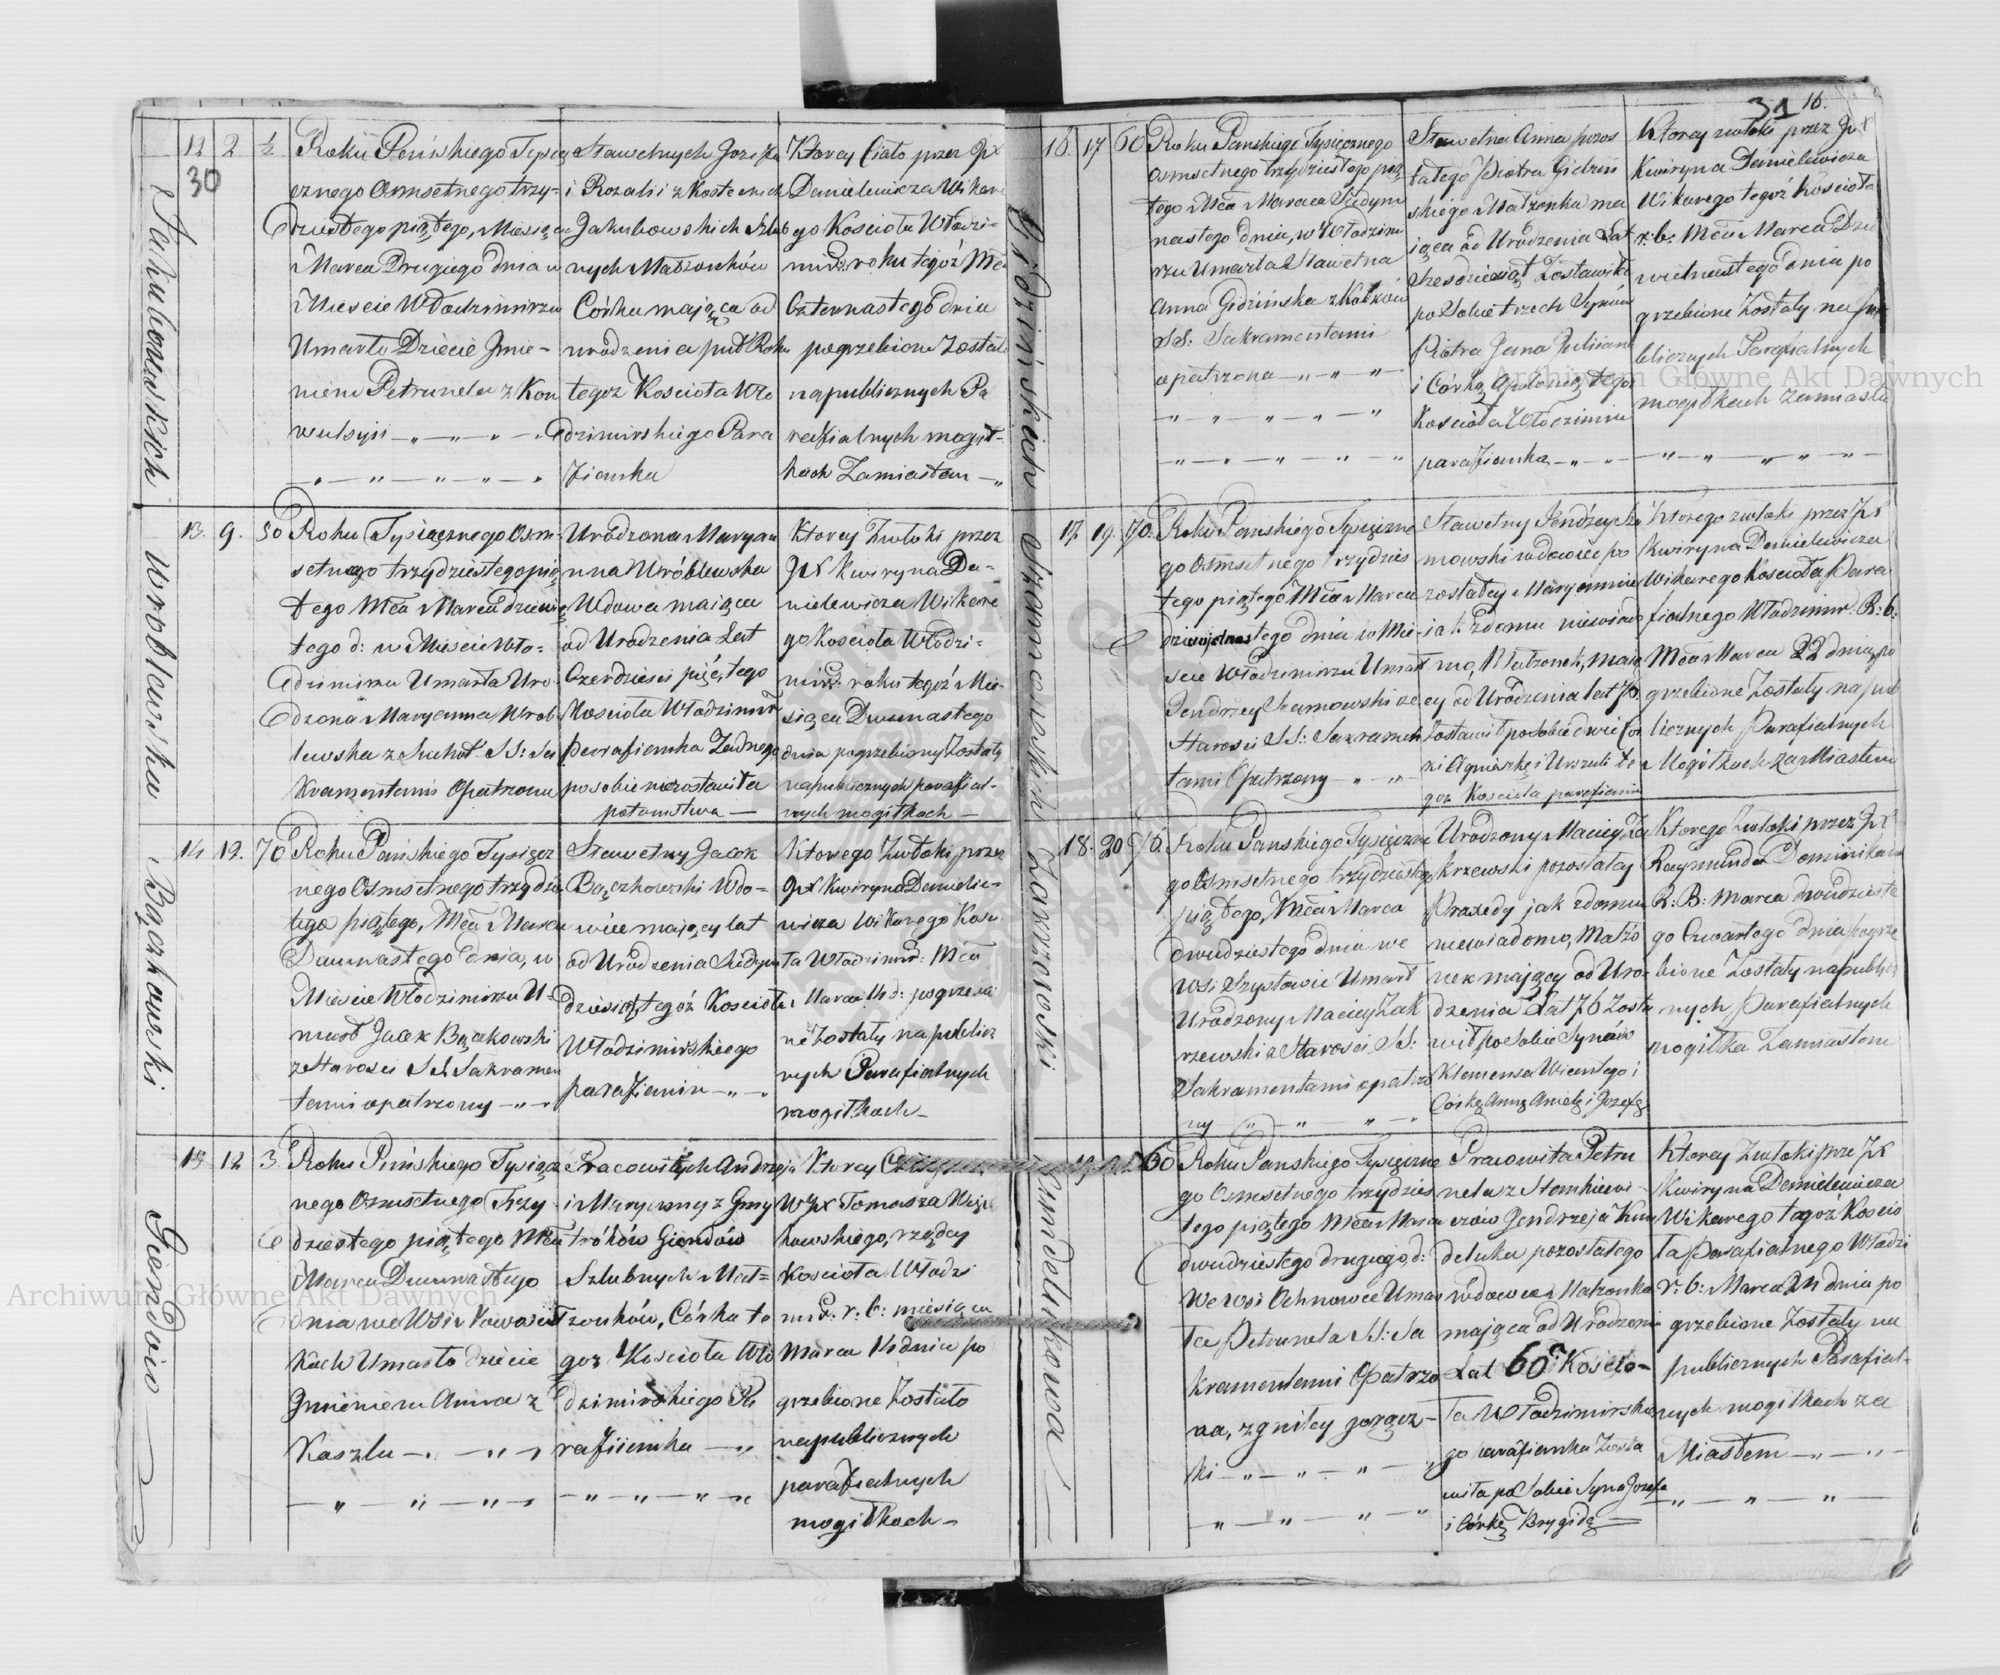 30
Jakubowskich
12
2
½
Roku Pańskiego Tysią
cznego Osmsetnego trzy-
dziestego piątego, Miesiąca
Marca Drugiego dnia w
Miescie Włodzimirzu
Umarło Dziecie Jmie-
niem Petrunela z Kon
wulsyii
Sławetnych Jozefa
i Rozalii z Kosteckich
Jakubowskich Szlub
nych Małżonków
Córka maiąca od
urodzenia puł Roku
tegoz Koscioła Wło
dzimirskiego Para
fianka
Ktorey Ciało przez JX
Danielewicza Wikare
go Kosciola Włodzi-
mirz: roku tegóż Mca
Czternastego dnia
pogrzebione Zostało
na publicznych Pa
rafialnych mogił-
kach Zamiastem
Wróblewska
13.
9.
50
Roku Tysiącznego Osm-
setnego trzydziestego pią
tego Mca Marca dziewią
tego d: w Miescie Wło-
dzimirzu Umarła Uro
dzona Maryanna Wrob
lewska z Suchot SS: Sa
kramentami Opatrzona
Urodzona Maryan
nna Wróblewska
Wdowa maiąca
od Urodzenia Lat
Czerdziesci pięć, tego
Kosciola Włodzimir
parafianka Żadnego
po sobie niezostawiła
potomstwa
Ktorey Zwłoki przez
JX Kwiryna Da-
nielewicza Wikare
go Kościoła Włodzi-
mirz: roku tegóż Mie-
siąca Dwunastego
dnia pogrzebiony Zostały
na publicznych parafial-
nych mogiłkach
Bączkowski
14
12.
70
Roku Pańskiego Tysiącz
nego Osmsetnego trzydzie
tego piątego, Mca Marca
Dwunastego dnia, w
Miescie Włodzimirzu U-
marł Jacek Bączkowski
z Starosci SS. Sakramen
tami opatrzony
Sławetny Jacek
Bączkowski Wdo-
wiec mający lat
od Urodzenia Siedym
dziesiąt, tegóż Kosciola
Włodzimirskiego
parafianin
Ktorego Zwłoki przez
JX Kwiryna Danielie-
wicza Wikarego Kosc
ła Włodzimir: Mca
Marca 14 d: pogrzebi
ne Zostały na publicz
nych Parafialnych
mogiłkach
Giendów
15
12
3.
Roku Pańskiego Tysiącz
nego Osmsetnego Trzy
dziestego piątego Mca
Marca Dwunastego
dnia we Wsi Nowosiół
kach Umarło dziecie
Jmieniem Anna z
Kaszlu
Pracowitych Andrzeja
i Maryanny z Gmy
tróków Giendów
Szlubnych Mał-
żonków, Córka te
goz Kosciola Wło
dzimirskiego Pa
rafiianka
Ktorey
W JX Tomasza
kowskiego, rządcy
Kosciola Włodzi
mir: r. b: miesiąca
Marca 14 dnia po
grzebione Zostało
napublicznych
parafialnych
mogiłkach
31
16.
Gidzińskich
16.
17
60
Roku Pańskiego Tysięcznego
osmsetnego trzydziestego pią
tego Mca Marca Siedym
nastego dnia, w Włodzimi
rzu Umarła Sławetna
Anna Gidzińska z Katków
SS: Sakramentami
opatrzona
Sławetna Anna pozos
tałego Piotra Gidziń
skiego Małżonka ma
iąca od Urodzenia Lat
Szesdziesiąt Zostawiła
po Sobie trzech Synów
Piotra Jana Juliana
i Córkę Apolonię tego
Kosciola Włodzimir
parafianka
Ktorey zwłoki przez JX
Kwiryna Danielewicza
Wikarego tegóż Kosciola
r: b: Mca Marca Dzie
wietnastego dnia po
grzebione Zostały na pu
blicznych Parafialnych
mogiłkach zamiastem
Szamowskich
17
19.
70.
Roku Pańskiego Tysiączne
go Osmsetnego trzydzies
tego piątego Mca Marca
dziewietnastego dnia w Mie-
scie Włodzimirzu Umarł
Jendrzey Szamowski ze
Starosci SS: Sakramen
tami Opatrzony
Sławetny Jendrzey Sza
mowski wdowiec po
zostałey Maryannie
jak z domu niewiado
mo, Małżonek, maią
cy od Urodzenia lat 70.
Zostawił po sobie dwie Cór
ki Agnieszkę i Urszuli te
goz Kosciola parafianin
Ktorego zwłoki przez JX
Kwiryna Danielewicza
Wikarego Kosciola Para
fialnego Włodzimir: R: b:
Mca Marca 22 dnia, po
grzebione Zostały na pub
licznych Parafialnych
Mogiłkach za Miastem
Zakrzewski
18.
20
76.
Roku Pańskiego Tysiączne
go Osmsetnego trzydziestego
piątego, Mca Marca
dwudziestego dnia we
Wsi Szystowie Umarł
Urodzony Maciey Zak
rzewski z Starosci SS:
Sakramentami opatrzo
ny
Urodzony Maciey Za
krzewski pozostałey
Praxedy jak z domu
niewiadomo, Małżo
nek mający od Uro-
dzenia Lat 76 Zosta
wił po Sobie Synów
Klemensa Wicentego i
Córkę Annę Anielę i Jozefę
Ktorego Zwłoki przez JX
Raymunda Dominikana
R: B: Marca dwudzieste
go Czwartego dnia pogrze
bione Zostały na publicz
nych Parafialnych
mogiłka Zamiastem
Kundelukowa
19.
22
60
Roku Pańskiego Tysiączne
go Osmsetnego trzydzies
tego piątego Mca Marca
dwudziestego drugiego d:
We Wsi Ochnowce Umar
ła Petrunela SS: Sa
kramentami Opatrzo
na, z gniłey gorącz-
ki
Pracowita Petru
nela z Stankiewi-
czów Jendrzeja Kun
deluka pozostałego
wdowca Małżonka
mająca od Urodzenia
Lat 60: Koscio-
ła Włodzimirskie
go parafianka Zosta
wiła po Sobie Syna Jozefa
i Córkę Brygidę
Ktorey Zwłoki prze JX
Kwiryna Danielewicza
Wikarego tegóż Koscio
ła Parafialnego Włodzi
r: b: Marca 24 dnia po
grzebione Zostały na
publicznych Parafial-
nych mogiłkach za
Miastem
Archiwum Główne Akt Dawnych
Archiwum Główne Akt Dawnych